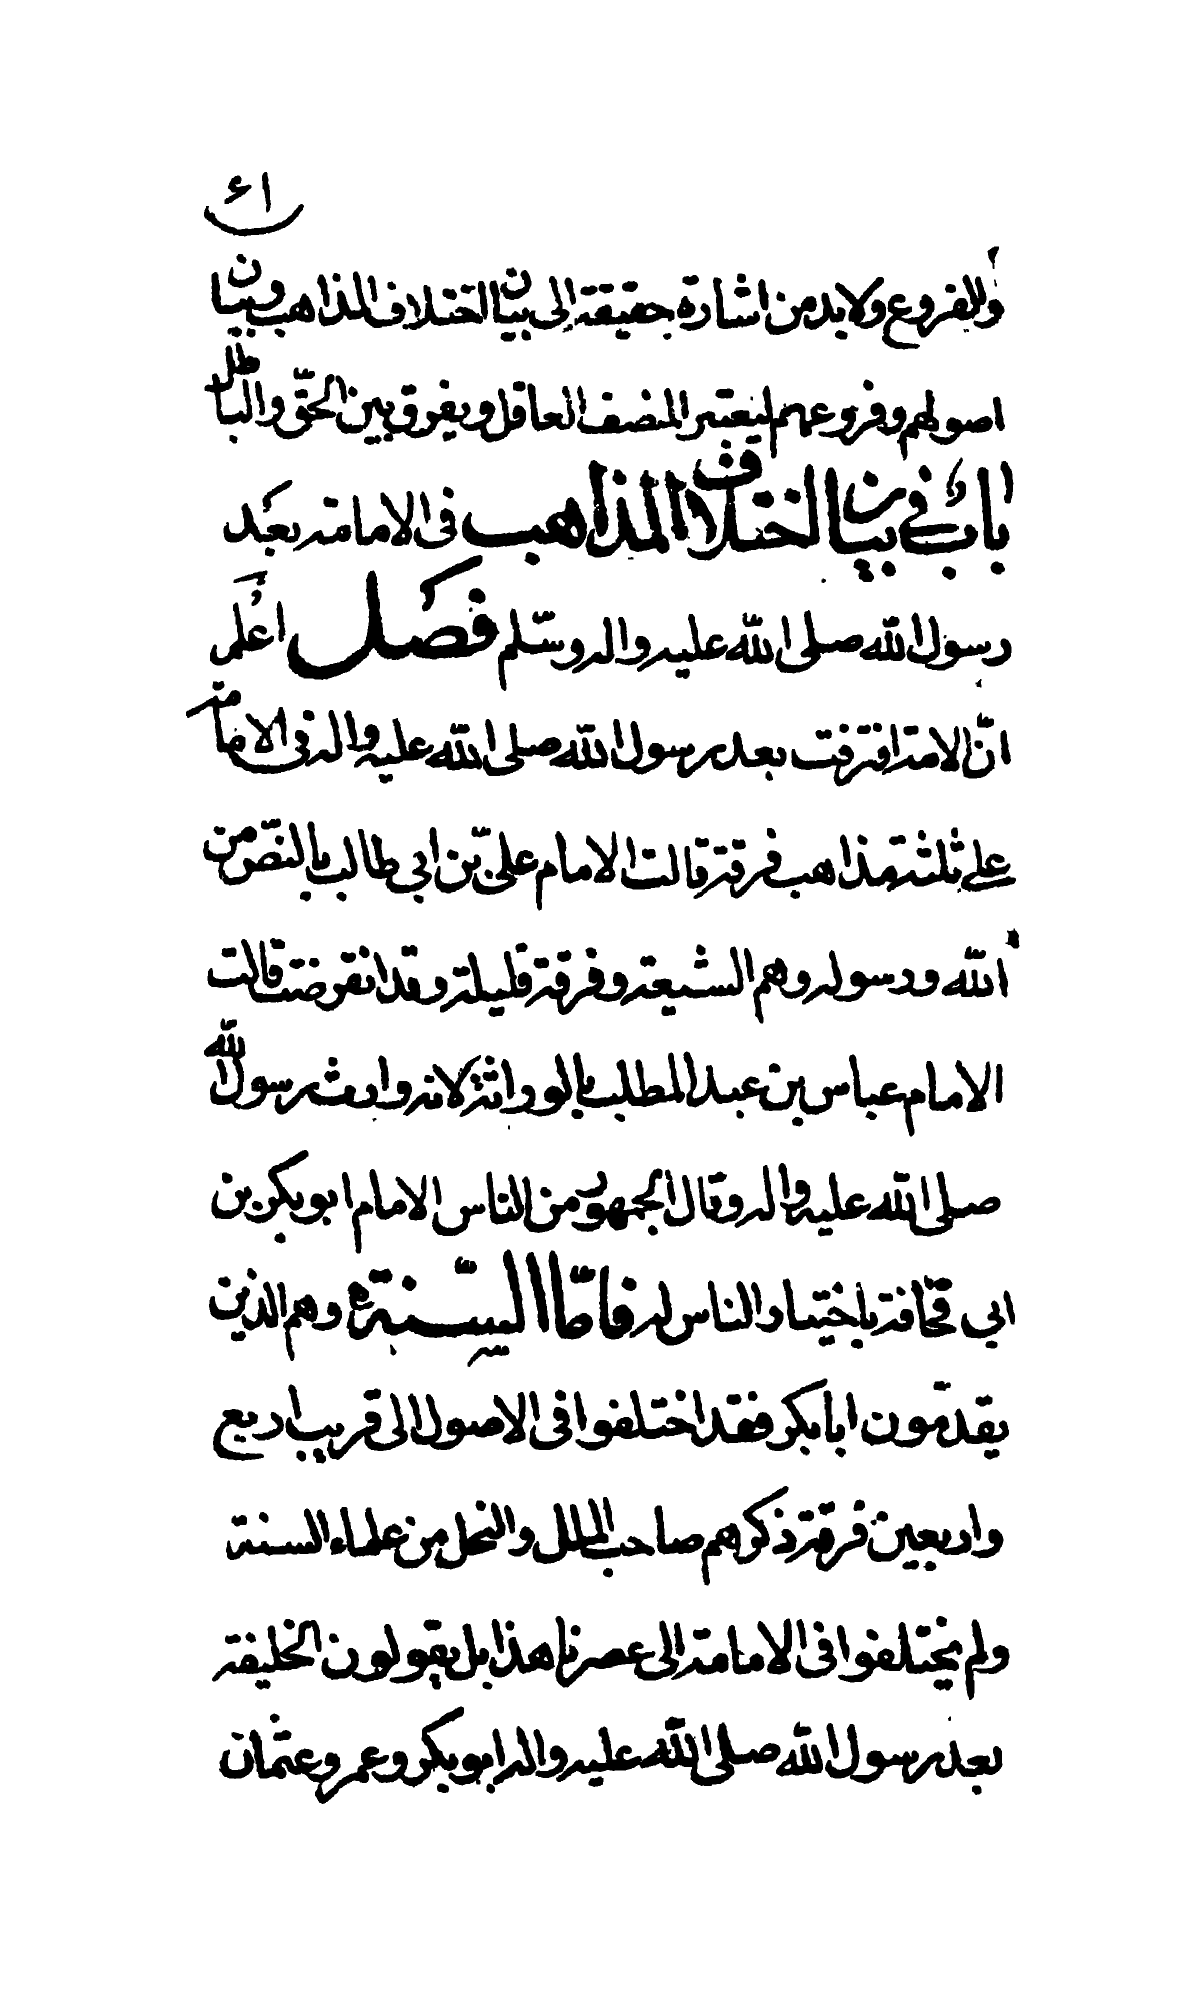 ٤١
وللفروع ولابد من اشارة حقيقة إلى بيان اختلاف المذاهب وبيان
اصولهم وفروعهم ليعتبر المنصف العاقل ويفرق بين الحقّ والباطل
بابٌ في بيان اختلاف المذاهب في الامامة بعد
رسول الله صلى الله عليه واله وسّلم فصل اعلم
انّ الامة افترقت بعد رسول الله صلى الله عليه واله في الامامة
على ثلثة مذاهب فرقة قالت الامام علىّ بن ابي طالب بالنصّ من
الله ورسوله وهم الشيعة وفرقة قليلة وقد انقرضت قالت
الامام عباس بن عبد المطلب بالوراثة لانه وارث رسول الله
صلى الله عليه واله وقال الجمهور من الناس الامام ابو بكر بن
ابي قحافة باختيار الناس له فامّا السّنة وهم الذين
يقدّمون ابابكر فقد اختلفوا في الاصول الى قريب اربع
واربعين فرقة ذكرهم صاحب الملل والنحل من علماء السنة
ولم يختلفوا في الامامة الى عصرنا هذا بل يقولون الخليفة
بعد رسول الله صلى الله عليه واله ابو بكر وعمر وعثمان